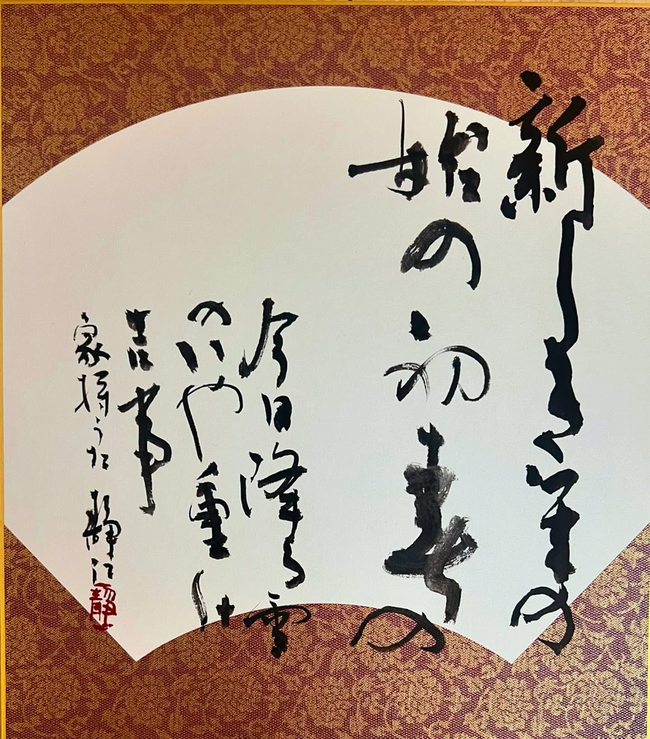 新しき年の
始の初春の
今日降る雪
のいや重け
吉事
家持うた 静江